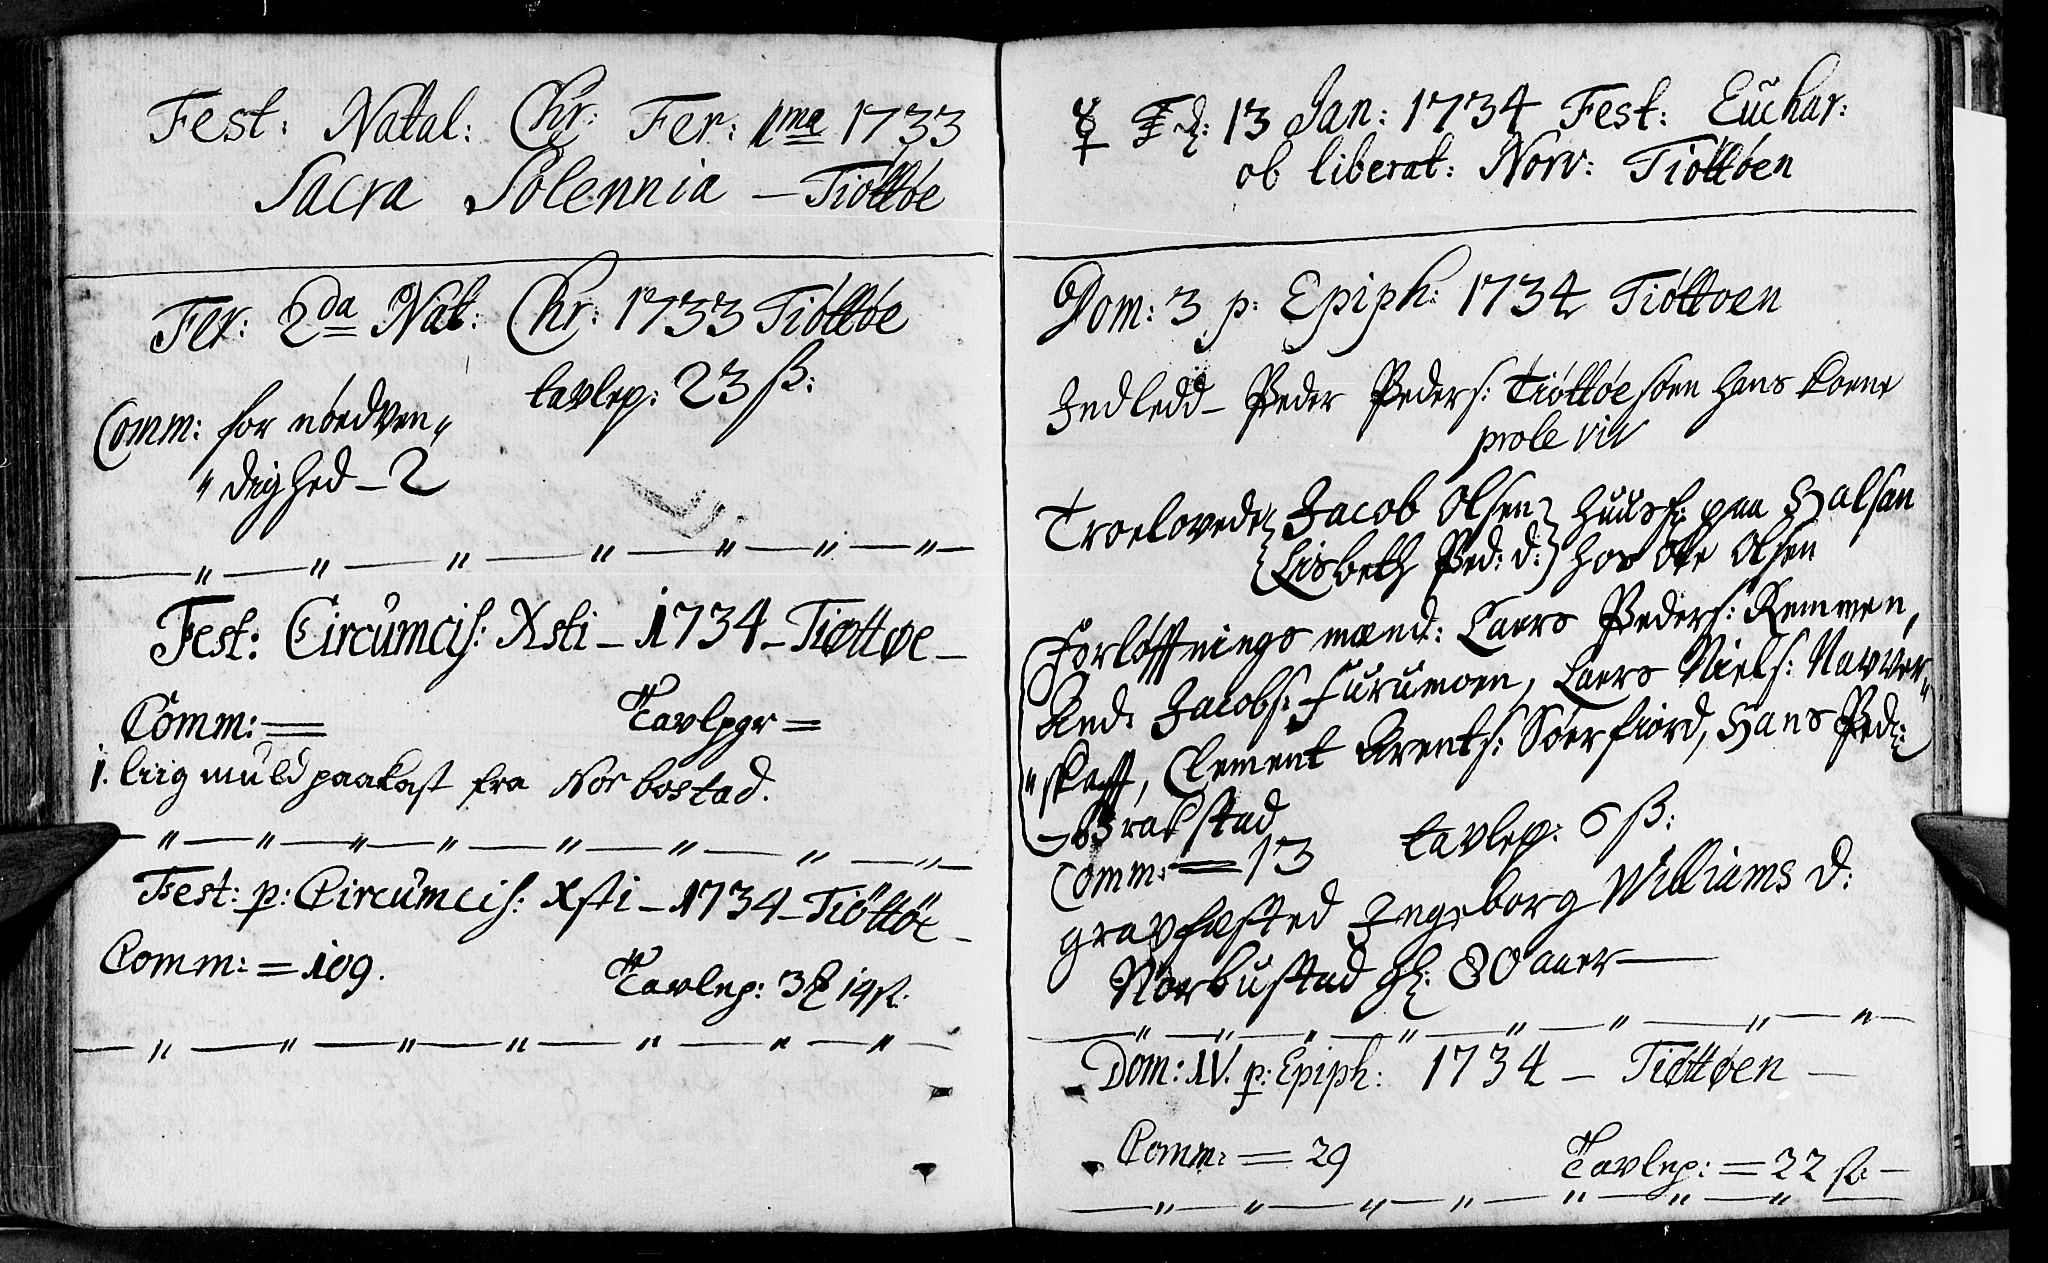 Fest: Natal: Chr: Fer: 1ma 1733
Sacra Solennia — Tiøttøe
Fer: 2da Nat: Chr: 1733 Tiøttøe
tavlep: 23 ß:
Comm: for nøedven„
„dighed – 2
Fest: Circumcis: Xsti – 1734 – Tiøttøe –
Comm: = Tavlpgr =
1. liig muld paakast fra Norbostad.
Fest: p: Circumcis: Xsti – 1734 – Tiøttöe –
Comm: = 109. Tavlep: 3 14 ß.
☿ d: 13 Jan: 1734 Fest: Euchar:
ob liberat: Norv: Tiøttøen
Dom: 3 p: Epiph: 1734 Tiøttøen
Indledd – Peder Peders: Tiøttøesøen hans koene
prole viv
Troelovede Jacob Olsen huusf: paa Halsan
Lisbeth Ped: d: hos Ole Olsen
Forløffnings mænd: Laers Peders: Remmen,
And: Jacobs: Furumoen, Laers Niels: Navver„
„skaff, Clement Arents: Søerfiord, Hans Ped:
– Brakstad
Comm: = 13 tavlep: 6 ß:
gravfæsted Ingeborg Williams D:
Norbustad gl: 80 aaer —
Dom: IV. p: Epiph: 1734 – Tiøttøen –
Comm: = 29 Tavlep: = 22 ß –